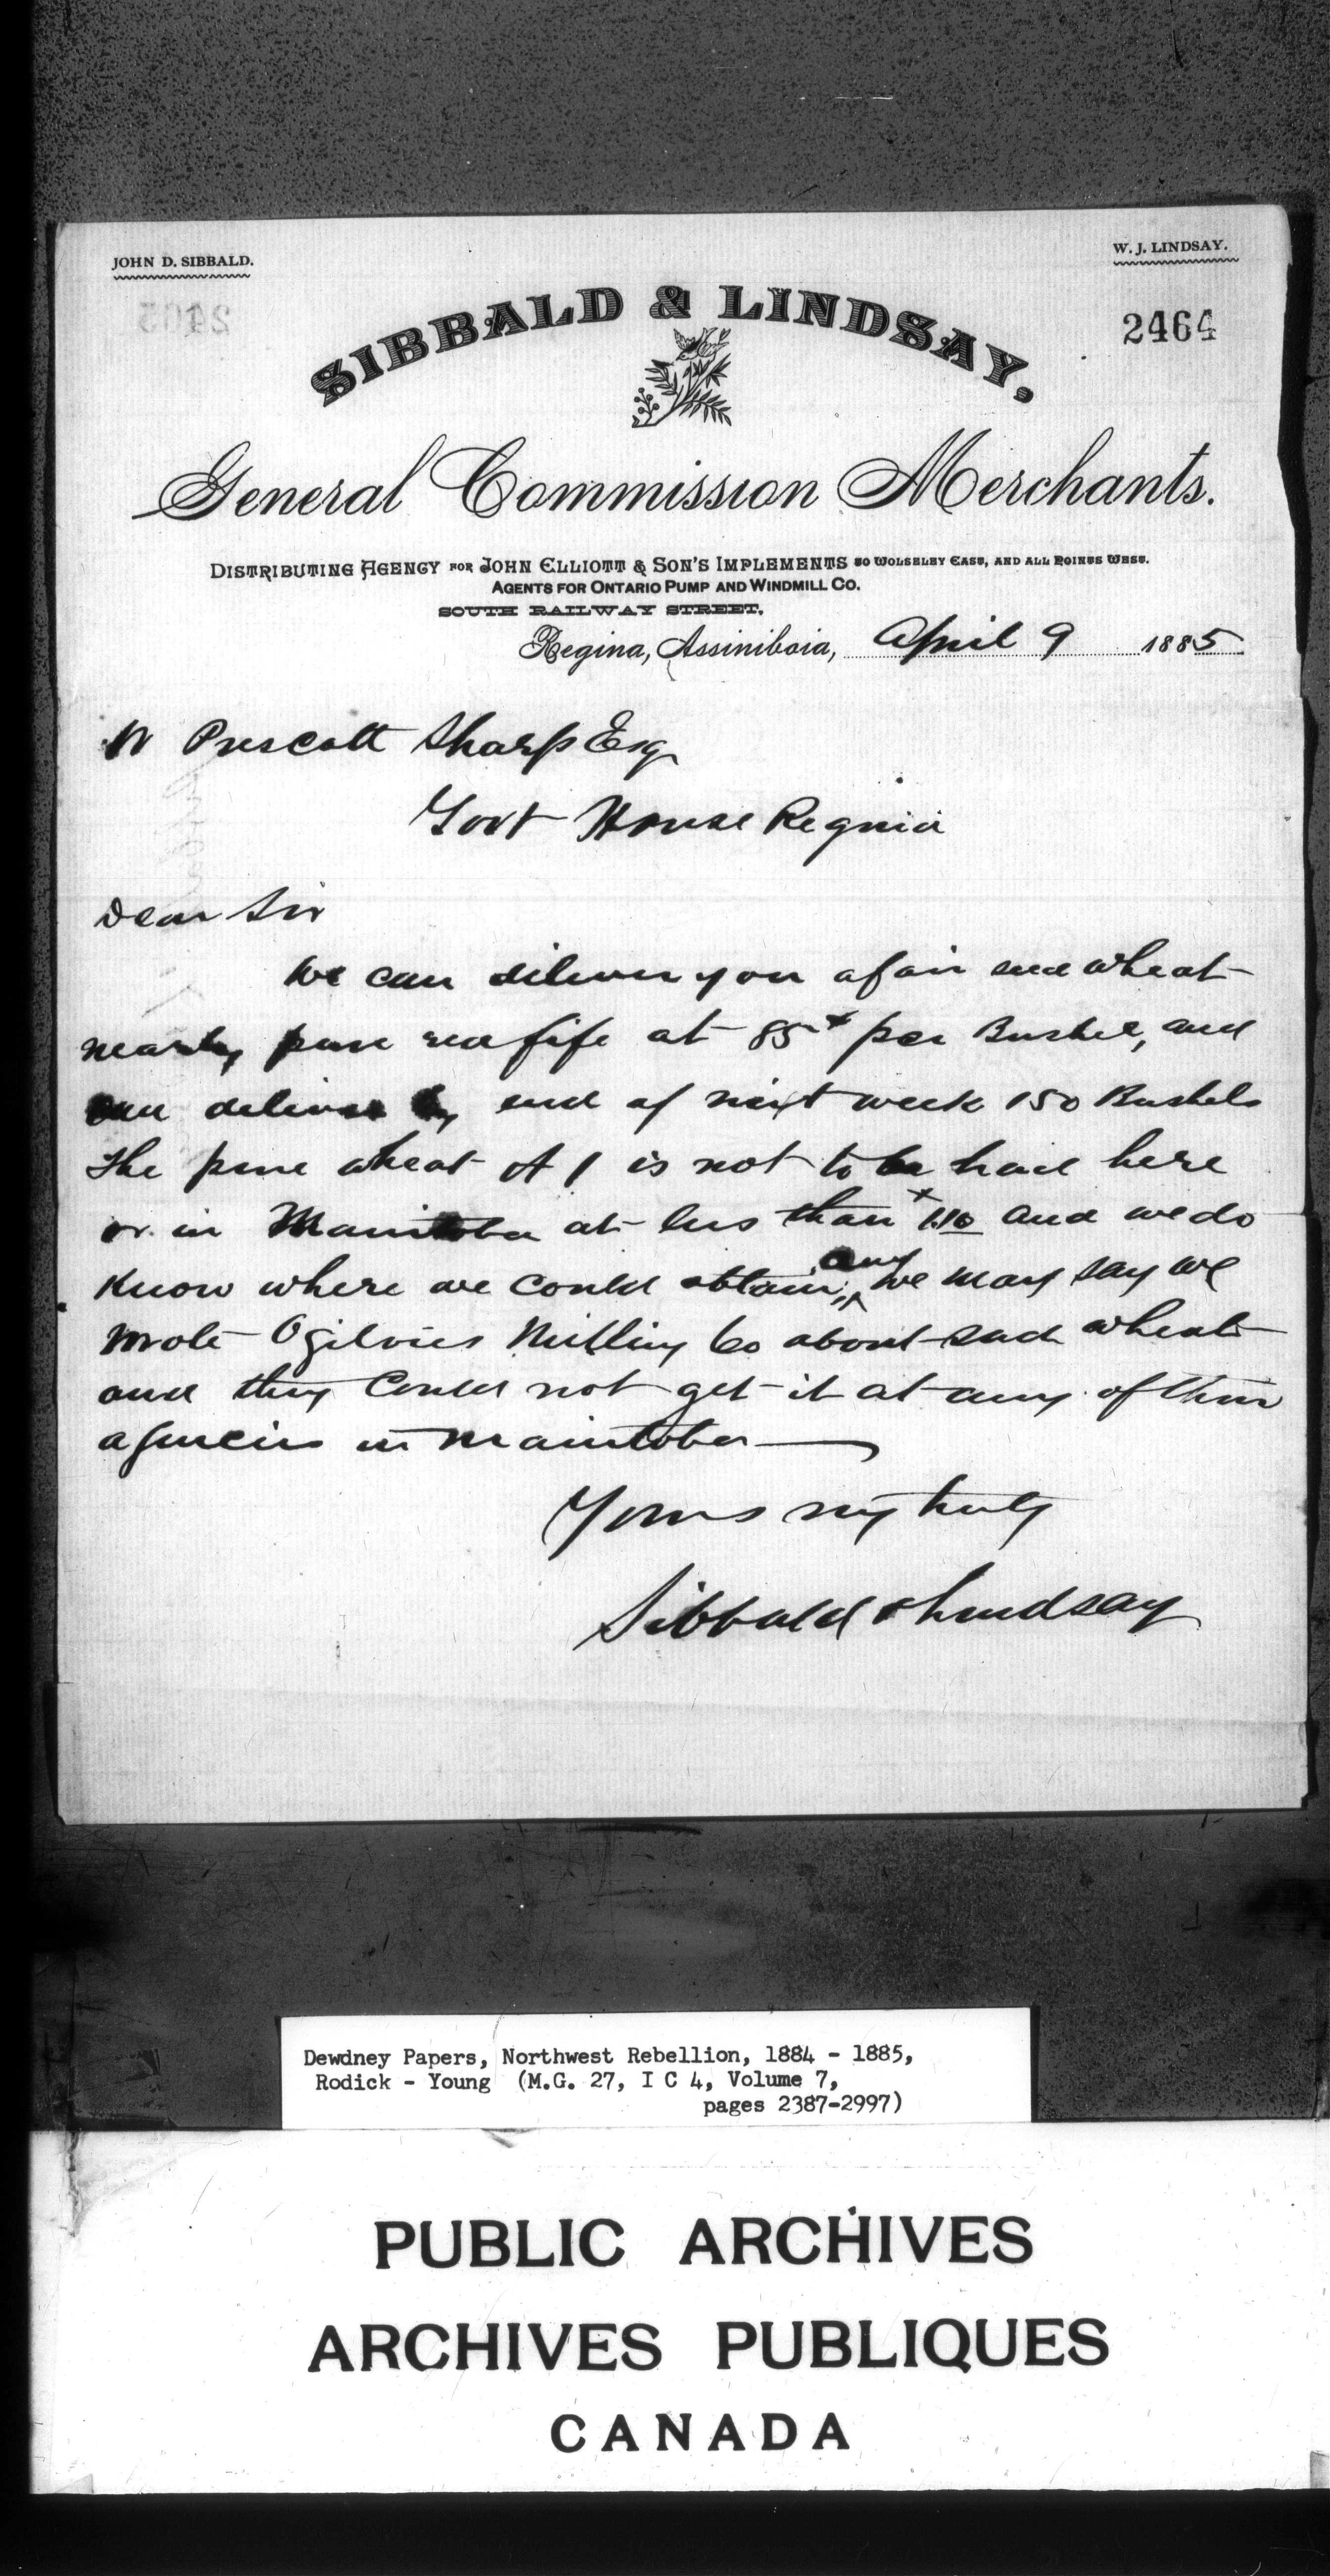 JOHN D. SIBBALD.
W. J. LINDSAY.
2464
SIBBALD & LINDSAY,
General Commission Merchants.
DISTRIBUTING AGENCY FOR JOHN ELLIOTT & SON'S IMPLEMENTS TO WOLSELEY EAST, AND ALL POINTS WEST.
AGENTS FOR ONTARIO PUMP AND WINDMILL CO.
SOUTH RAILWAY STREET,
Regina, Assiniboia, April 9 1885
W Prescott Sharp Esq
Govt House Regina
Dear Sir
We can deliver you a fair seed wheat
nearly pure red fife at 85 per Bushel, and
can deliver by end of next week 150 Bushels
The pure wheat A 1 is not to be had here
or in Manitoba at less than 1.10 and we do
know where we could obtain any, We may say we
wrote Ogilvies Milling Co about seed wheat
and they could not get it at any of their
agencies in Manitoba
Yours very truly
Sibbald & Lindsay
Dewdney Papers, Northwest Rebellion, 1884 - 1885,
Rodick - Young (M.G. 27, I C 4, Volume 7,
pages 2387-2997)
PUBLIC ARCHIVES
ARCHIVES PUBLIQUES
CANADA